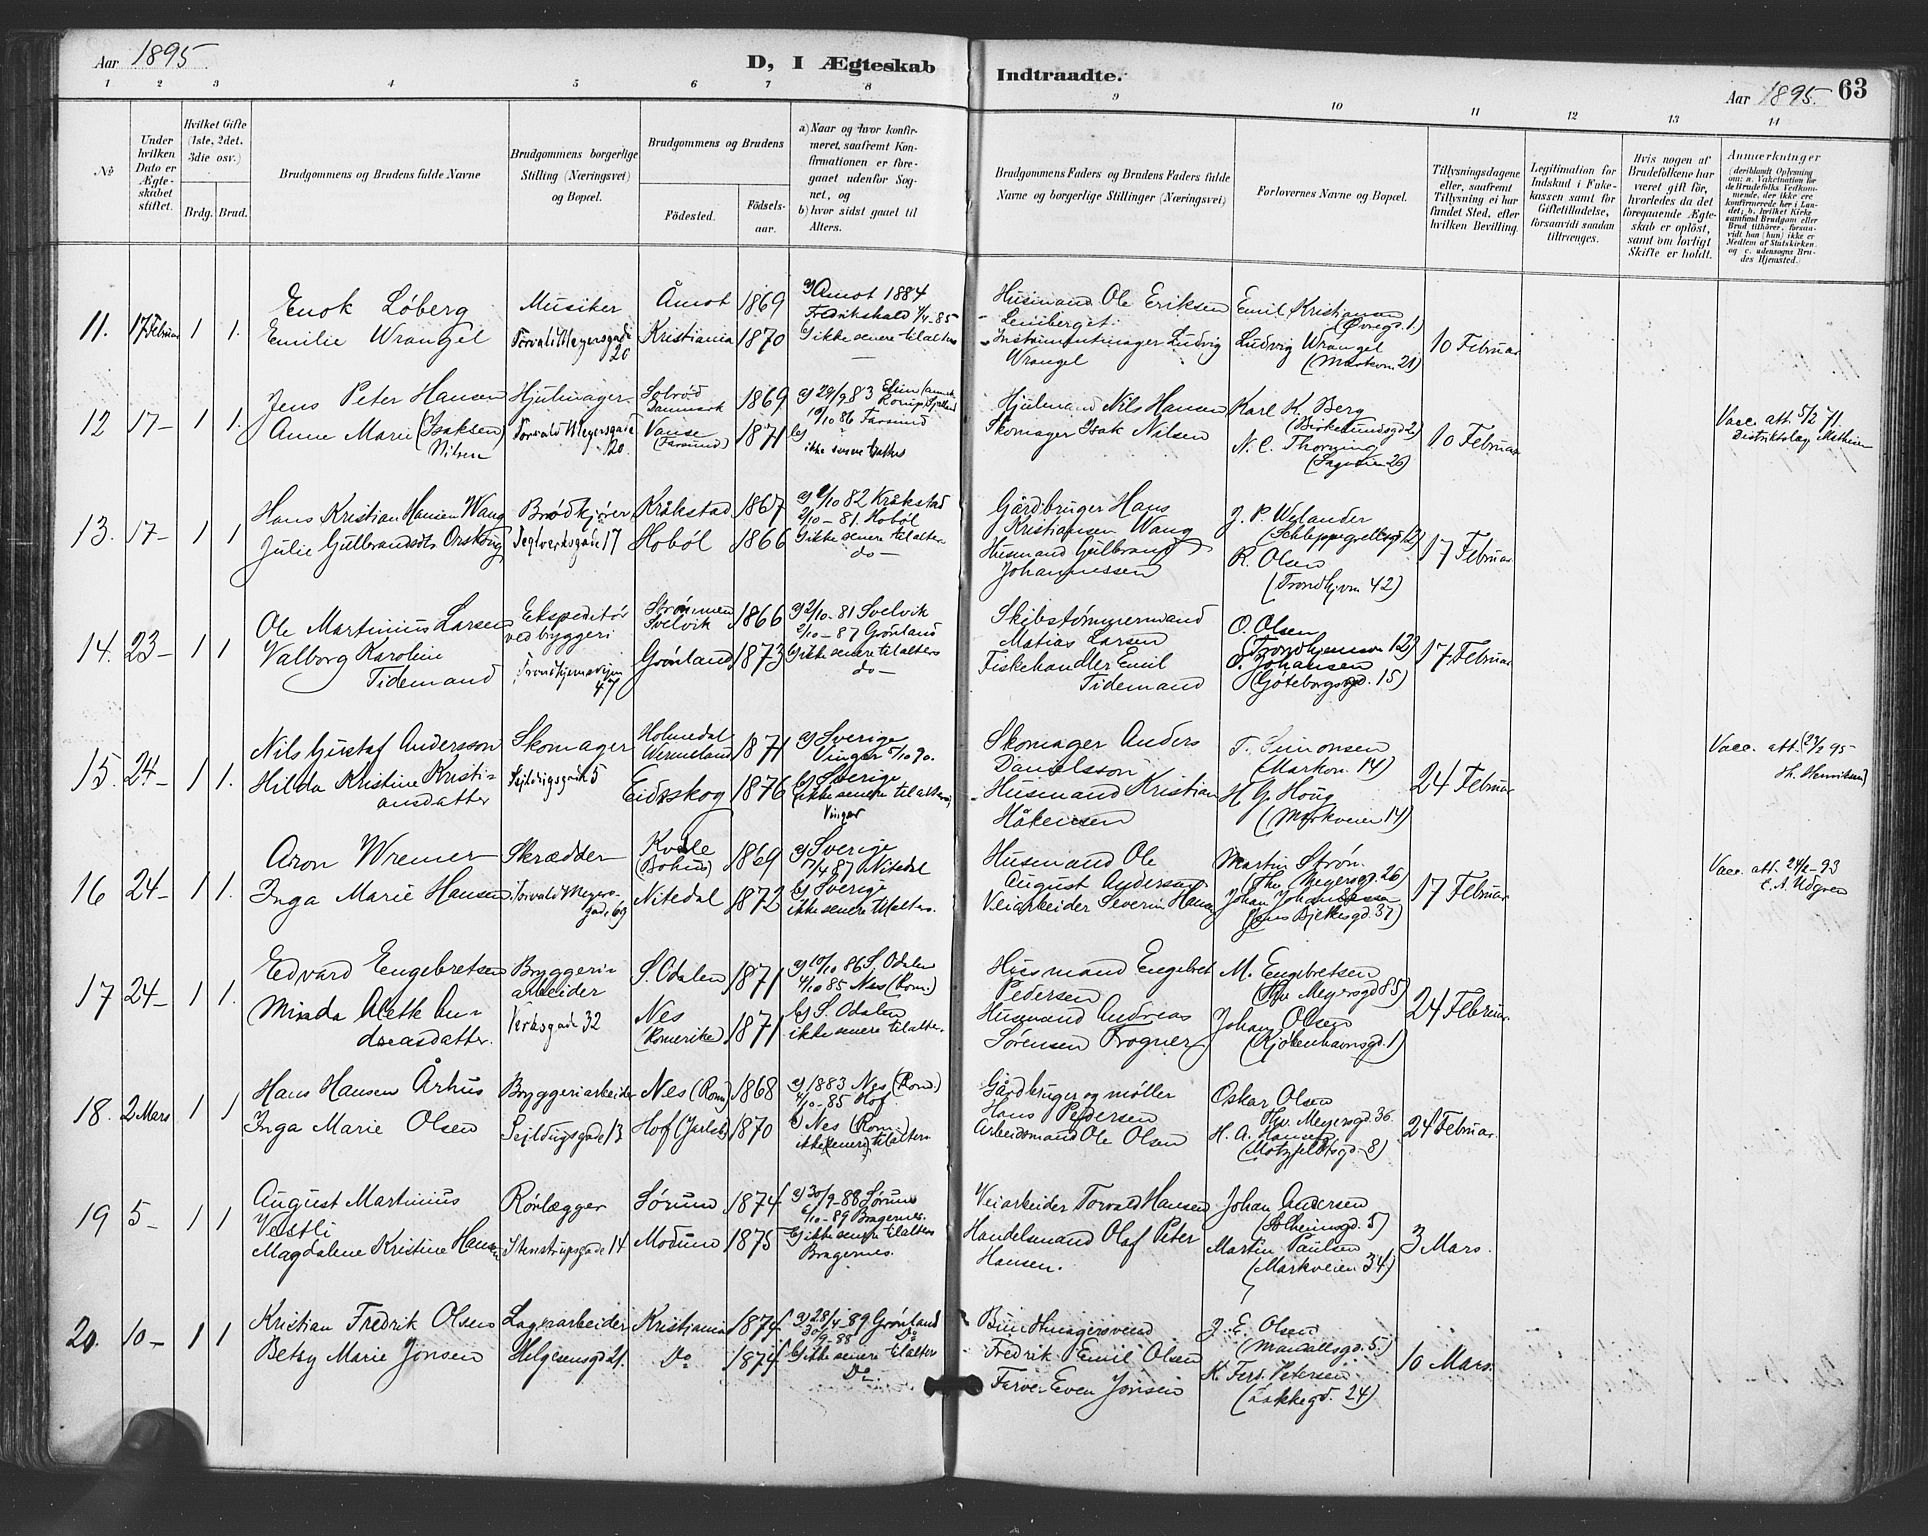 Aar 1895
D, I Ægteskab Indtraadte.
Aar 1895. 63
1 2 3 4 5 6 7 8 9 10 11 12 13 14
No
Under hvilken Dato er Ægteskabet stiftet.
Hvilket Gifte (1ste, 2det, 3die osv.)
Brdg. Brud.
Brudgommens og Brudens fulde Navne
Brudgommens borgerlige Stilling (Næringsvei) og Bopæl.
Brudgommens og Brudens
Födested. Födselsaar.
a) Naar og hvor konfirmeret, saafremt Konfirmationen er foregaaet udenfor Sognet, og
b) hvor sidst gaaet til Alters.
Brudgommens Faders og Brudens Faders fulde Navne og borgerlige Stillinger (Næringsvei)
Forlovernes Navne og Bopæl.
Tillysningsdagene eller, saafremt Tillysning ei har fundet Sted, efter hvilken Bevilling.
Legitimation for Indskud i Enkekassen samt for Giftetilladelse, forsaavidt saadan tiltrænges.
Hvis nogen af Brudefolkene har været gift för, hvorledes da det foregaaende Ægteskab er oplöst, samt om lovligt Skifte er holdt.
Anmærkninger
(deriblandt Oplysning om: a. Vakcination for de Brudefolks Vedkommende, der ikke ere konfirmerede her i Landet; b. hvilket Kirkesamfund Brudgom eller Brud tilhörer, forsaavidt han (hun) ikke er Medlem af Statskirken, og c. udensogns Brudes Hjemsted.)
11. 17 Februar 1 1. Enok Løberg Musiker Åmot 1869 a) Åmot 1884 Husmand Ole Eriksen Emil Kristiansen
Emilie Wrangel Torvald Meyersgade 20 Kristiania 1870 Fredrikshald 85 Lensberget (Øvregd. 1) 10 Februar
b) ikke senere tilalters Instrumentmager Ludvig Wrangel Ludvig Wrangel (Markvn. 21)
12 17- 1 1. Jens Peter Hansen Hjulmager Solrød Danmark 1869 a) 29/9 83 Hjulmand Nils Hansen Karl K. Berg
Anne Marie (Isaksen) Nilsen Torvald Meyersgade 20. Vanse (Farsund) 1871 10/10 86 Farsund Skomager Isak Nilsen (Birkelundsgd 2) 10 Februar
b) ikke senere tilalters N. C. Thorning
Vacc. att. 5/2 71. Distriktslæg Mathiesen
13. 17- 1 1 Hans Kristian Hansen Wang Brødkjører Kråkstad 1867 82 Kråkstad Gårdbruger Hans Kristiansen Wang J. P. Welander (Schleppegrellsgd 12)
Julie Gulbrandsdtr Orskoug Teglverksgaden 17 Hobøl 1866 2/10 - 81. Hobøl Husmand Gulbrand Johannessen R. Olsen (Trondhjvn 42) 17 Februar
b) ikke senere tilalters do-
14. 23- 1 1 Ole Martinius Larsen Ekspeditør ved byggeri Strømmen Svelvik 1866 a) 2/10 - 81 Svelvik Skibstømmermand Matias Larsen O. Olsen (Trondhjemsvn 12)
Valborg Karoline Tidemand Trondhjemsveien 47 Grønland 1873 2/10 - 87 Grønland Fiskehandler Emil Tidemand O. Johansen (Göteborgsgd. 15) 17 Februar
b) ikke senere tilalters do-
15. 24- 1 1. Nils Gustaf Andersson Skomager Holmedal Wermeland 1871 a) Sverige Skomager Anders Danielsson T. Simonsen (Markvn. 14)
Hilda Kristine Kristiansdatter Seildugsgade 5 Eidsskog 1876 Vinger 5/10 90. Husmand Kristian Håkensen H. G. Houg (Markveien 14) 24 Februar
b) Sverige ikke senere tilalters Vinger
Vacc. att. 95 Th. Henriksen
16 24- 1 1. Aron Wremer Skrædder (Bohus) 1869 a) Sverige Husmand Ole August Andersen Martin Strøm (Thv. Meyersgd. 26)
Inga Marie Hansen Torvald Meyersgade 69 Nitedal 1872 87 Nitedal Veiarbeider Severin Hansen Johan Johannessen (Jens Bjelkesgd. 37) 17 Februar
b) Sverige ikke senere tilalters.
Vacc. att. 24/2 - 93 C. A. Udgren
17 24- 1 1. Edvard Engebretsen Bryggeriarbeider S. Odalen 1871 a) 10/10 86 S. Odalen Husmand Engebret Pedersen M. Engebretsen (Thv Meyersgd 85)
Minda Alette Andreasdatter. Verksgade 32 Nes (Romerike) 1871 4/10 85 Nes (Rom.) Husmand Andreas Sørensen Frogner Johan Olsen (Kjøbenhavnsgd. 1) 24 Februar
b) S. Odalen ikke senere tilalters.
18. 2 Mars 1 1 Hans Hansen Århus Bryggeriarbeider Nes (Rom) 1868 a) 1883 Nes (Rom.) Gårdbruger og møller Hans Pedersen Oskar Olsen Thv. Meyersgd. 36
Inga Marie Olsen Seildugsgade 13 Hof (Jarlsb) 1870 4/10 - 85 Hof Arbeidsmand Ole Olsen H. A. Hansen (Motzfeldtsgd. 8) 24 Februar.
b) Nes (Rom.) ikke (senere) tilalters
19 5- 1 1 August Martinius Vestli Rørlægger Sørum 1874 a) 30/9 - 88 Sørum Veiarbeider Torvald Hansen Johan Andersen (Solheimsgd. 5)
Magdalene Kristine Hansen Stenstrupsgade 14 Modum 1875 6/10 - 89 Bragernes. Handelsmand Olaf Peter Hansen. Martin Paulsen (Markveien 34) 3 Mars.
b) ikke senere tilalters Bragernes.
20. 10- 1 1 Kristian Fredrik Olsen Lagerarbeider Kristiania 1874 a) 28/4 - 89 Grønland Fredrik Emil Olsen J. E. Olsen (Mandallsgd. 5.)
Betsy Marie Jonsen Helgesensgd 21. Do 1874 30/9 - 88 Do Farver Even Jonsen K. Ferd. Petersen (Lakkegd. 24) 10 Mars.
b) ikke senere tilalters Do.